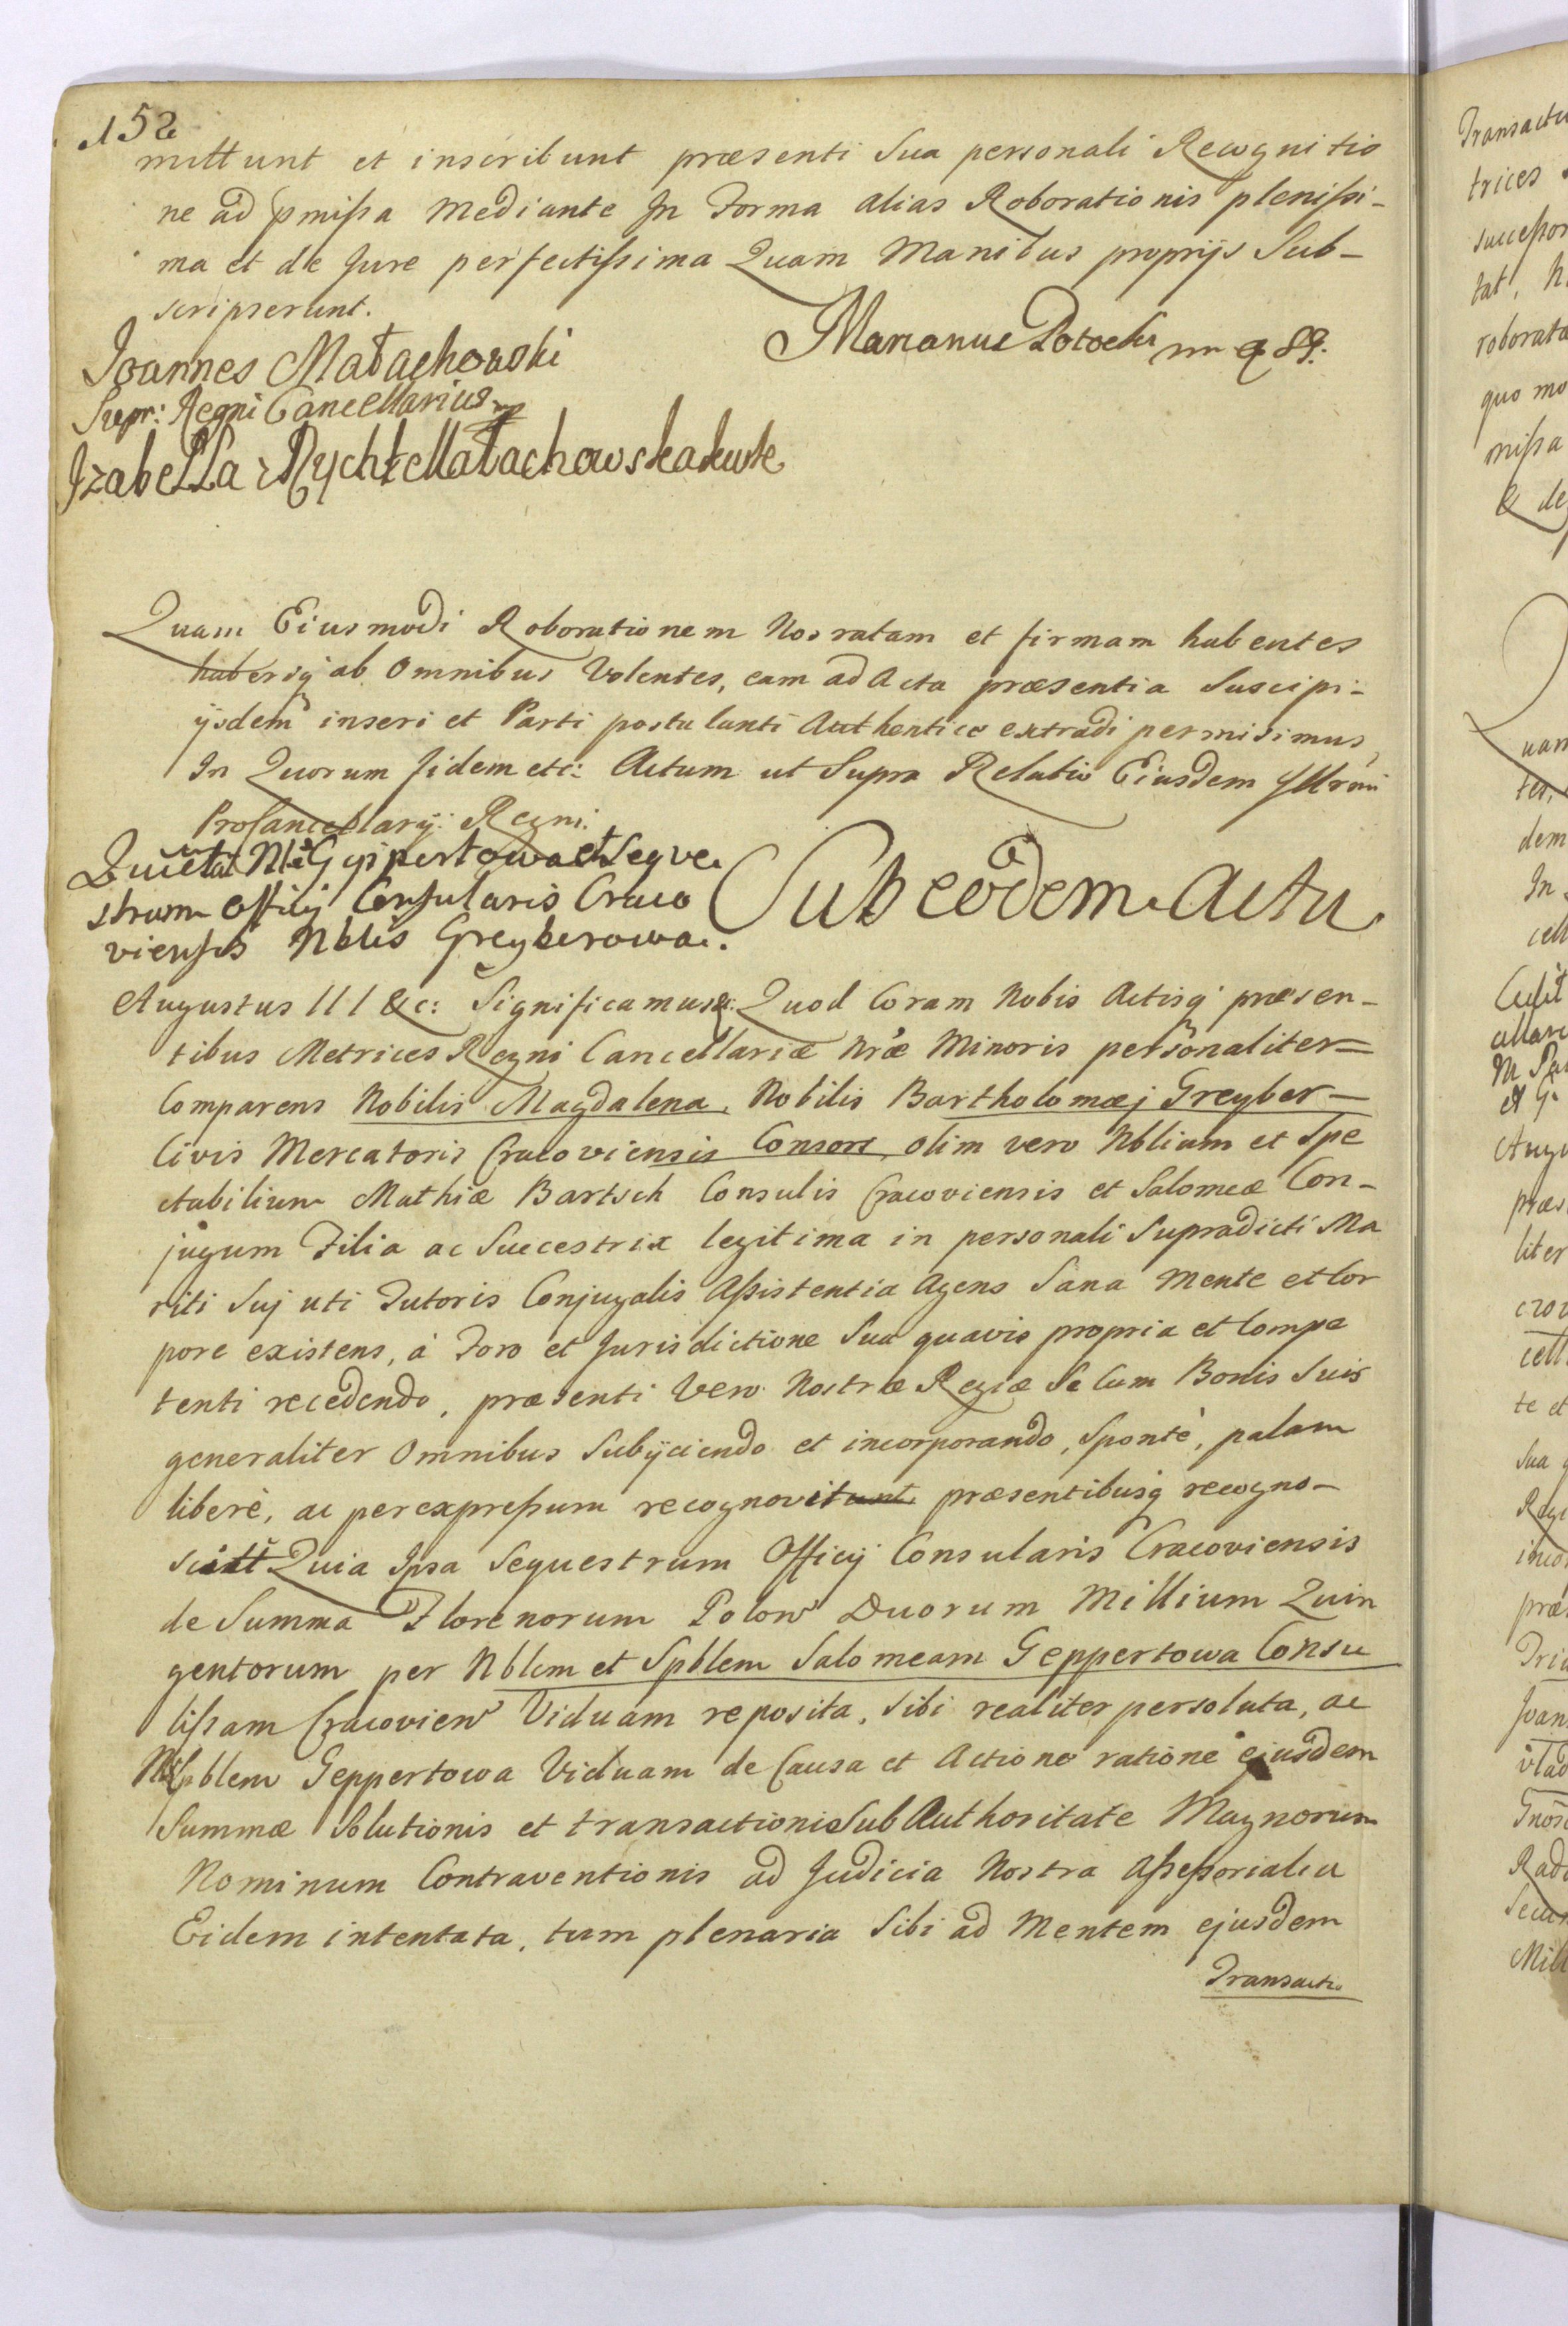 152
mittunt et inscribunt præsenti Sua personali Recognitio
ne ad pmißa Mediante In Forma alias Roborationis plenißi-
ma et de Jure perfectißima Quam Manibus proprijs Sub-
scripserunt.
Joannes Małachowski
Marianus Potocki
Supr: Regni Cancellarius
Izabella
Quam Eiusmodi Roborationem Nos ratam et firmam habentes
haberiq ab Omnibus Volentes, eam ad Acta præsentia Suscipi-
ijsdem inseri et Parti postulanti Authentice extradi permisimus
In Quorum fidem etc: Actum ut Supra Relatio Eiusdem Illrmi
Procancellarij Regni.
Quietat Nlis Gyppertowa et Seque
strum Officij Consularis Craco
viensis Nblis Greyberowa.
Sub eodem Actu
Augustus III &c: Significamus &: Quod Coram Nobis Actisq præsen-
tibus Metrices Regni Cancellariæ nræ Minoris personaliter
Comparens Nobilis Magdalena, Nobilis Bartholomæj Greyber-
Civis Mercatoris Cracoviensis Consors, olim vero Nblium et Spe
ctabilium Mathiæ Bartsch Consulis Cracoviensis et Salomeæ Con-
jugum Filia ac Succestrix legitima in personali Supradicti Ma
riti Suj uti Tutoris Conjugalis Aßistentia Agens Sana Mente et Cor
pore existens, à Foro et Jurisdictione Sua quavis propria et Compe
tenti recedendo, præsenti Vero Nostræ Regiæ Se Cum Bonis Suis
generaliter Omnibus Subijciendo et incorporando, Sponte, palam
liberè, ac per expreßum recognovit præsentibusq recogno-
scit Quia Ipsa Sequestrum Officij Consularis Cracoviensis
de Summa Florenorum Polon Duorum Millium Quin
gentorum per Nblem et Spblem Salomeam Geppertowa Consu
lißam Cracovien Viduam reposita, Sibi realiter persoluta, ac
Spblem Geppertowa Viduam de Causa et Actione ratione ejusdem
Summæ Solutionis et transactionis Sub Authoritate Magnorum
Nominum Contraventionis ad Judicia Nostra Aßeßorialia
Eidem intentata, tum plenaria Sibi ad Mentem ejusdem
Transactio
Transactio
trices
succeßor
tat,
roborata
quo mo
mißa
& de
uam
dem
In
cell
præs
liter
te et
Sua
præ
Joan
vlad
Mill